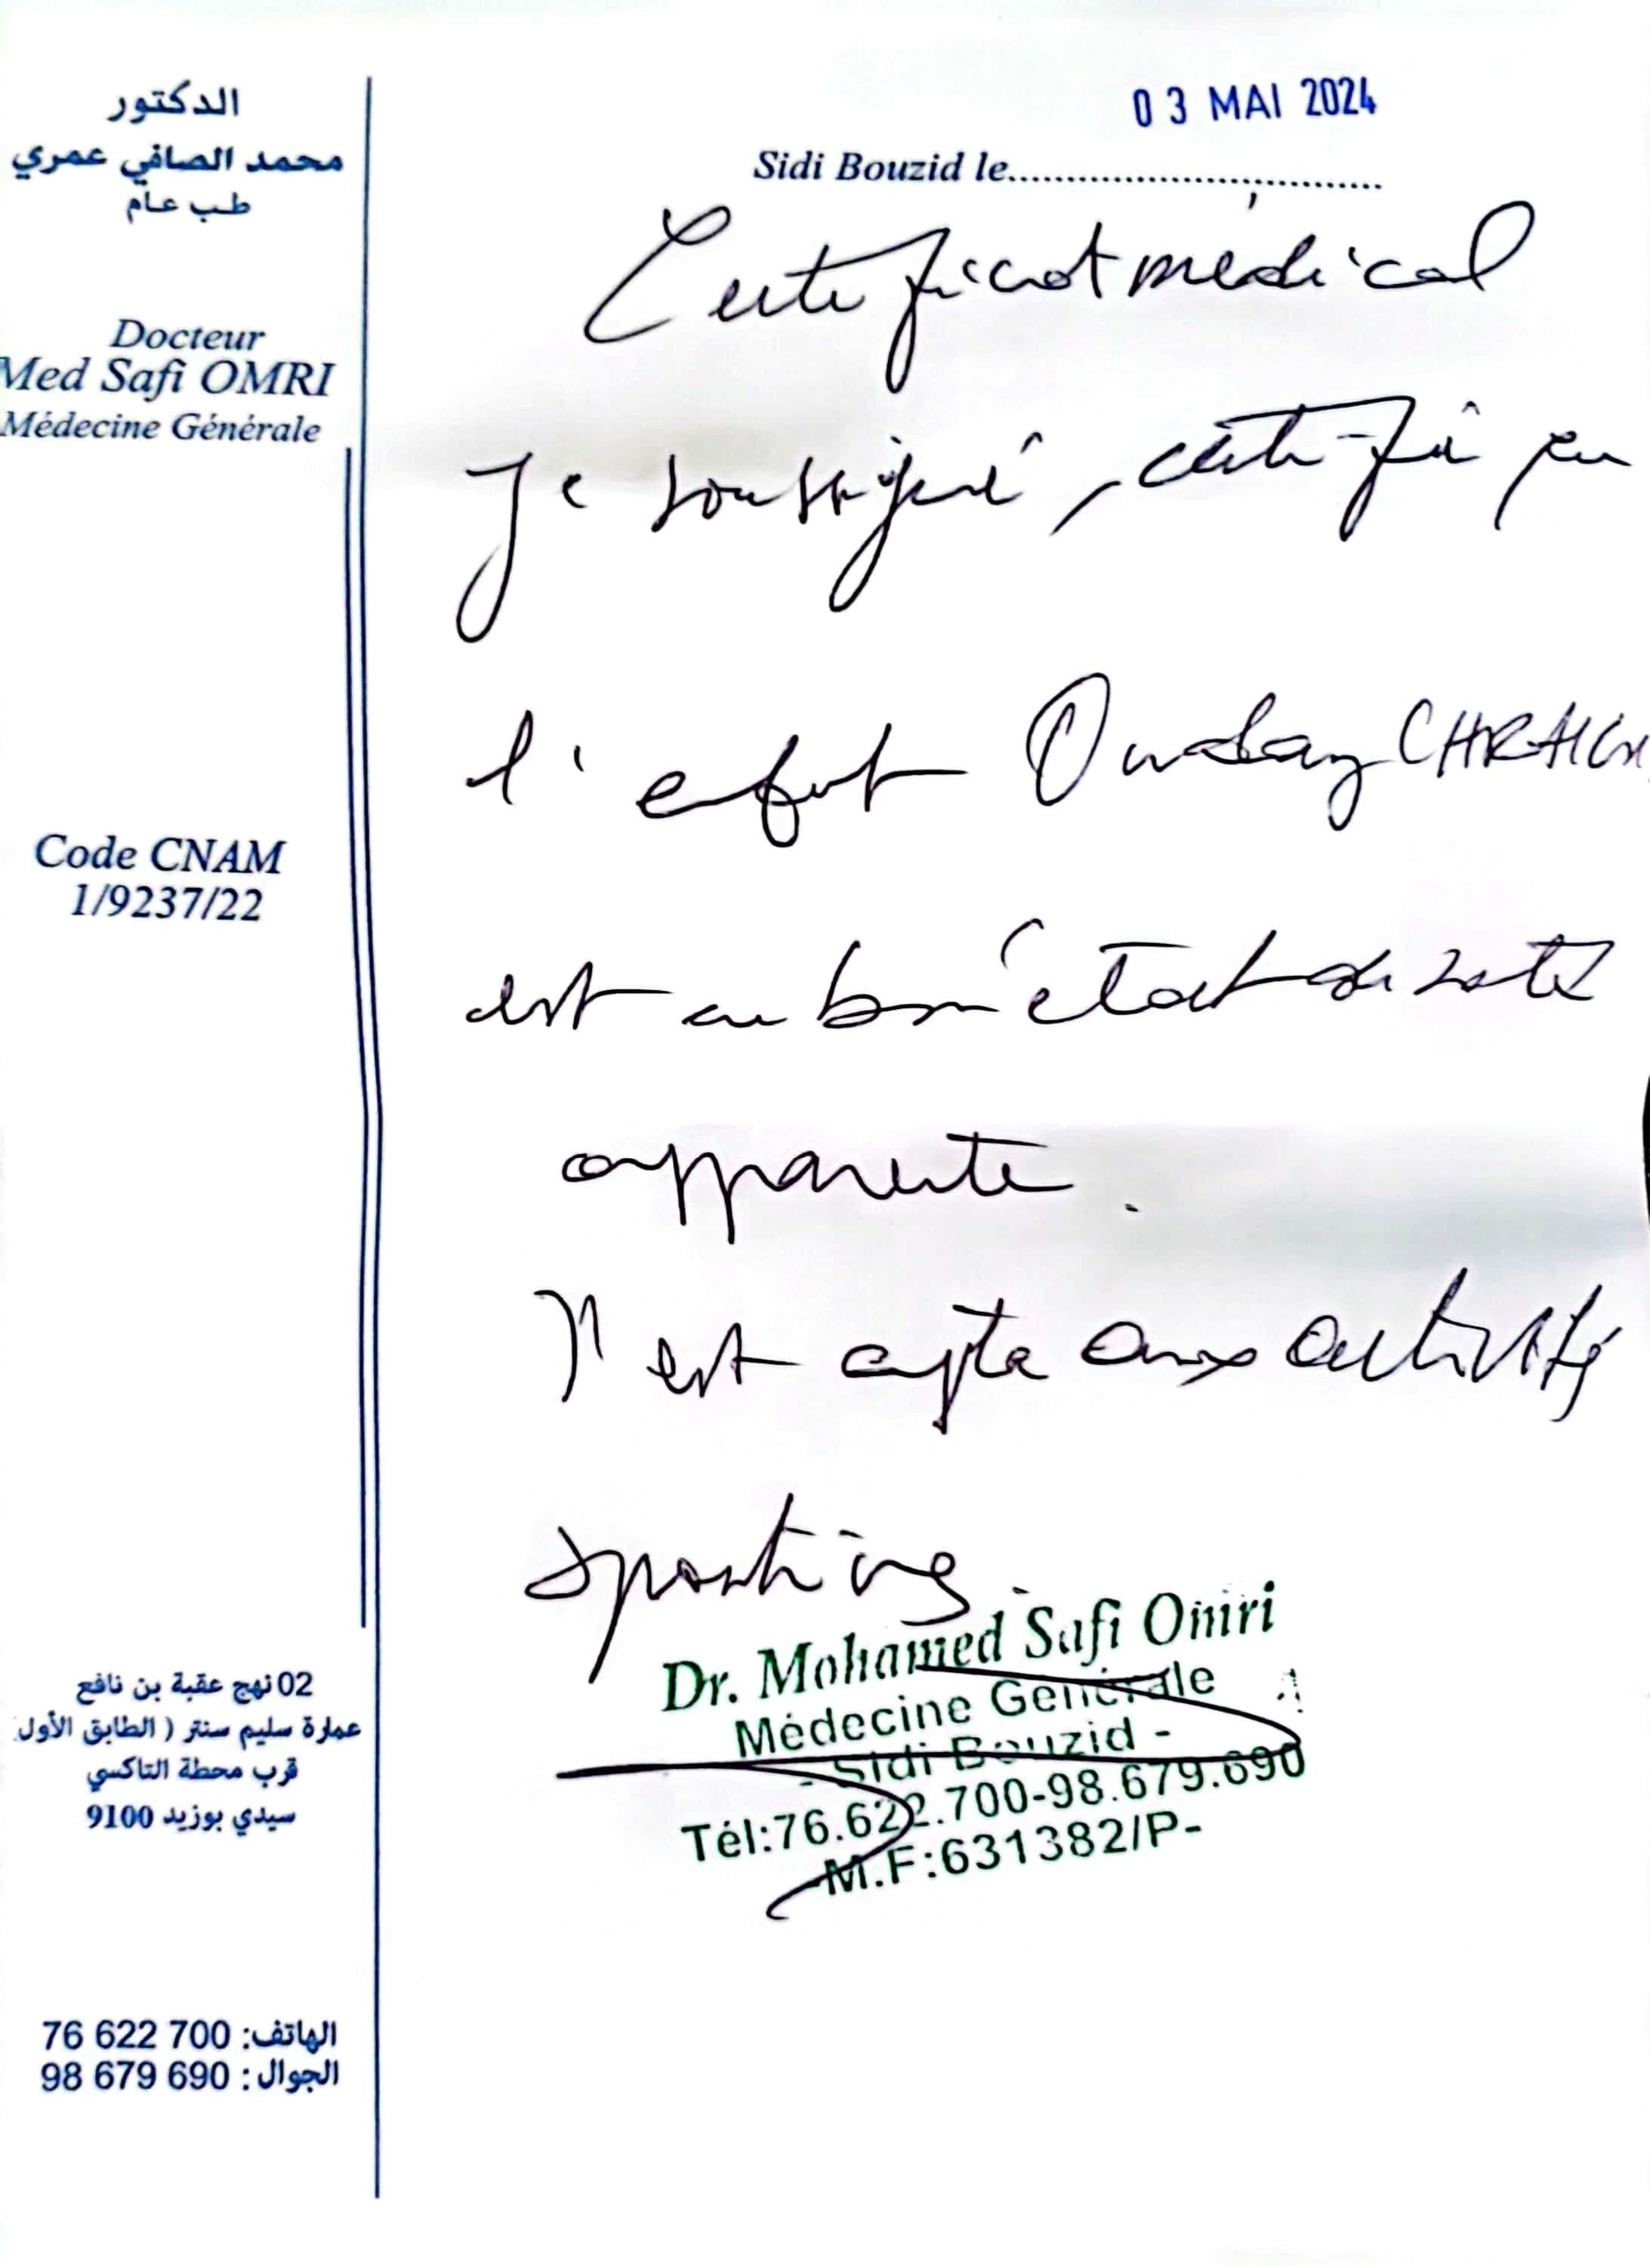 الدكتور
محمد الصافي عمري
طب عام
Docteur
Med Safi OMRI
Médecine Générale
Code CNAM
1/9237/22
02 نهج عقبة بن نافع
عمارة سليم سنتر ( الطابق الأول
قرب محطة التاكسي
سيدي بوزيد 9100
الهاتف: 76 622 700
الجوال: 98 679 690
03 MAI 2024
Sidi Bouzid le
Certificat médical
Je soussigné, certifie
l'enfant
est en bon état de santé
apparente.
Il est apte aux activités
sportives
Dr. Mohamed Safi Omri
Médecine Générale
- Sidi Bouzid -
Tél:76.622.700-98.679.690
M.F:631382/P-